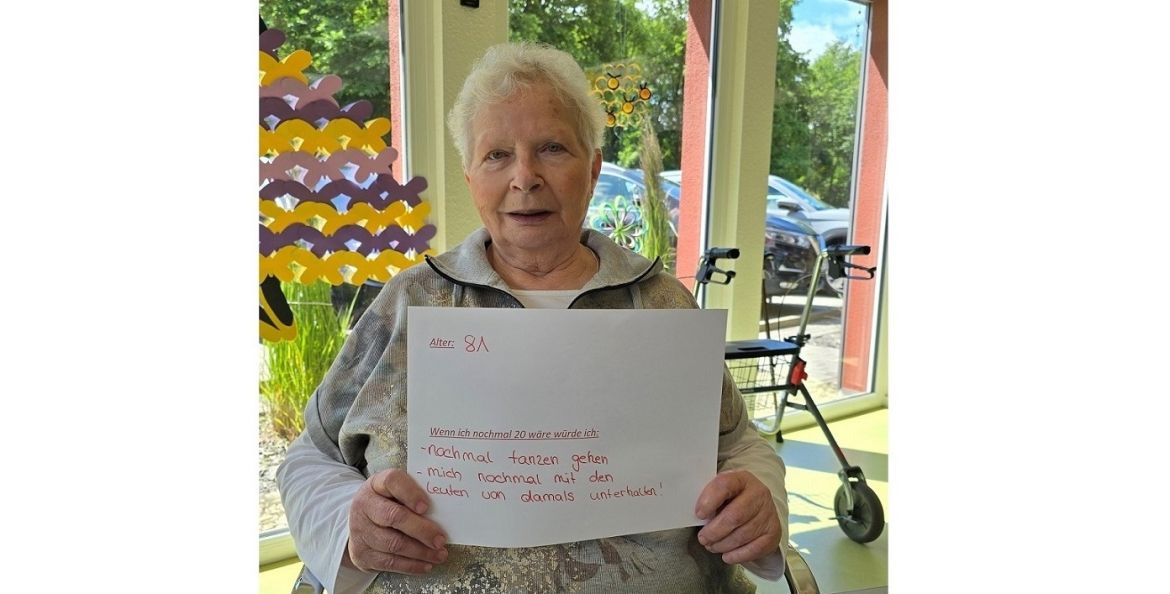 Alter: 81
Wenn ich nochmal 20 wäre würde ich:
-nochmal tanzen gehen
- mich nochmal mit den
Leuten von damals unterhalten!